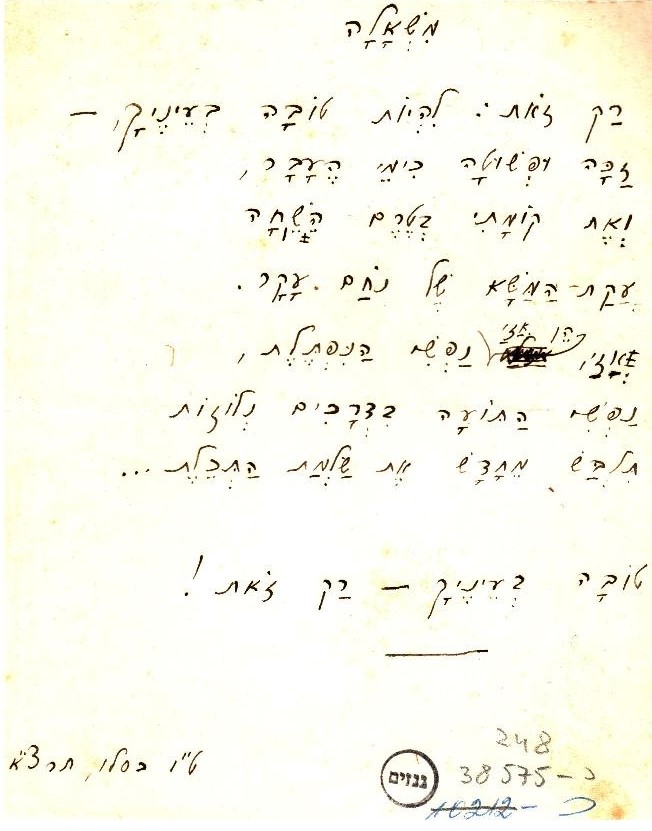 מִשְׁאָלָה
רַק זֹאת: לִהְיוֹת טוֹבָה בְּעֵינֶיךָ, –
זַכָּה וּפְשׁוּטָה כִּימֵי הֶעָבָר,
וְאֶת קוֹמָתִי בְּטֶרֶם הֱשִׁחָהּ
עָקַת-הַמַּשָּׂא שֶׁל נֹחַם עָקָר.
הֵן אֲזַי
אֲזַי נַפְשִׁי הַנִּפְתֶּלֶת,
נַפְשִׁי הַתּוֹעָה בִּדְרָכִים נְלוֹזוֹת
תִּלְבַּשׁ מֵחָדָשׁ אֶת שַׂלְמַת הַתְּכֵלֶת...
טוֹבָה בְּעֵינֶיךָ – רַק זֹאת!
ט"ו כסלו, תרצ"א
248
גנזים
38575-כ
10212-כ